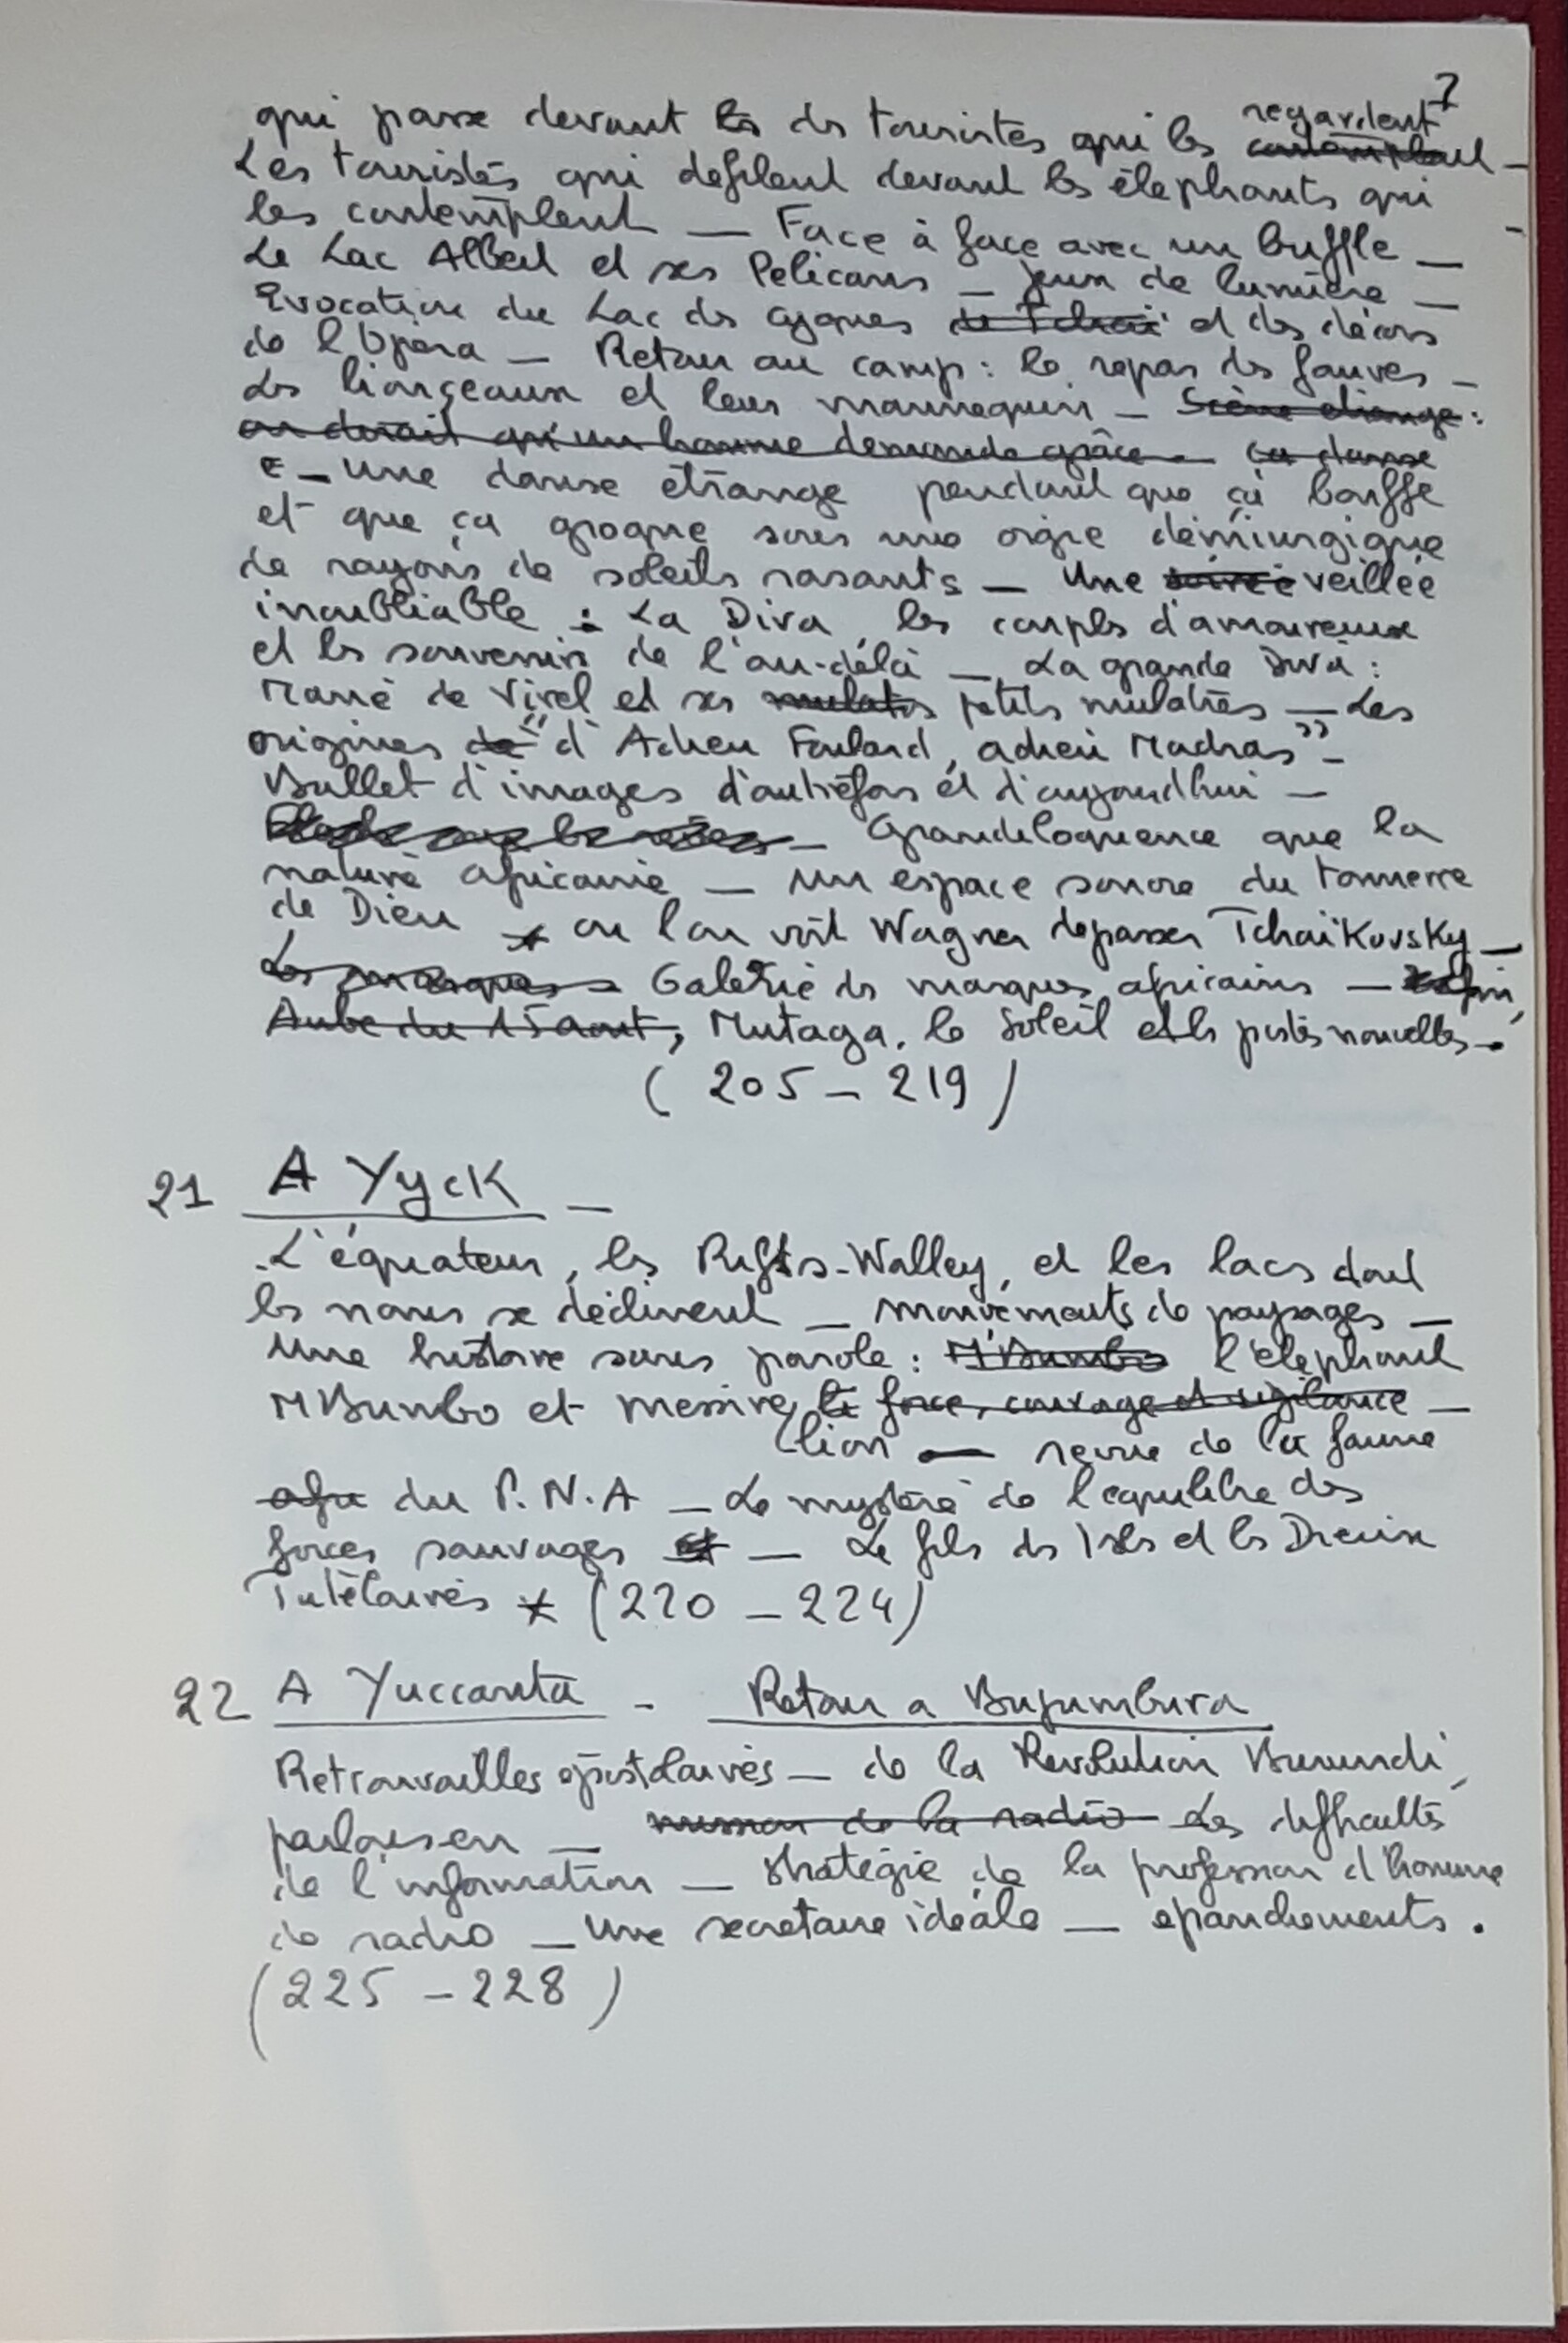 7
qui passe devant les des touristes qui les contemplent regardent –
Les touristes qui défilent devant les éléphants qui
les contemplent — Face à face avec un buffle —
Le Lac Albert et ses Pelicans — jeux de lumière —
Evocation du Lac des cygnes de Tchaï et des décors
de l'Opéra — Retour au camp : le repas des fauves –
Les lionceaux et leur mannequin – Scène étrange :
on dirait qu'un homme demande grâce – ça danse
E – Une danse étrange pendant que ça bouffe
et que ça grogne sous une orgie démiurgique
de rayons de soleils rasants – Une soirée veillée
inoubliable : La Diva, les couples d'amoureux
et les souvenirs de l'au-délà – La grande Diva :
Marie de Virel et ses mulatos petits mulâtres – Les
origines de "d'Adieu Foulard, adieu Madras" –
Ballet d'images d'autrefois et d'aujourd'hui –
Grandeloquence que la
nature africaine — un espace sonore du tonnerre
de Dieu où l'on voit Wagner dépasser Tchaïkovsky —
Les masques – Galerie des masques africains — fin,
Aube du 15 août, Mutaga, le Soleil et les pistes nouvelles –
( 205 – 219 )
21 A Yyck –
L'équateur, les Rifts-Walley, et les lacs dont
les noms se déclinent – mouvements de paysages –
Une histoire sans parole : M'Bumbo l'éléphant
M'Bumbo et messire le force, courage et vigilance –
lion — revue de la faune
afri du P.N.A – Le mystère de l'équilibre des
forces sauvages et – Le fils des Isles et les Dieux
Tutélaires (220 – 224)
22 A Yuccanta - Retour a Bujumbura
Retrouvailles épistolaires – de la Révolution Burundi,
parlons en – mission de la radio Les difficultés
de l'information – Stratégie de la profession d'homme
de radio – Une secretaire idéale – épanchements.
(225 – 228)